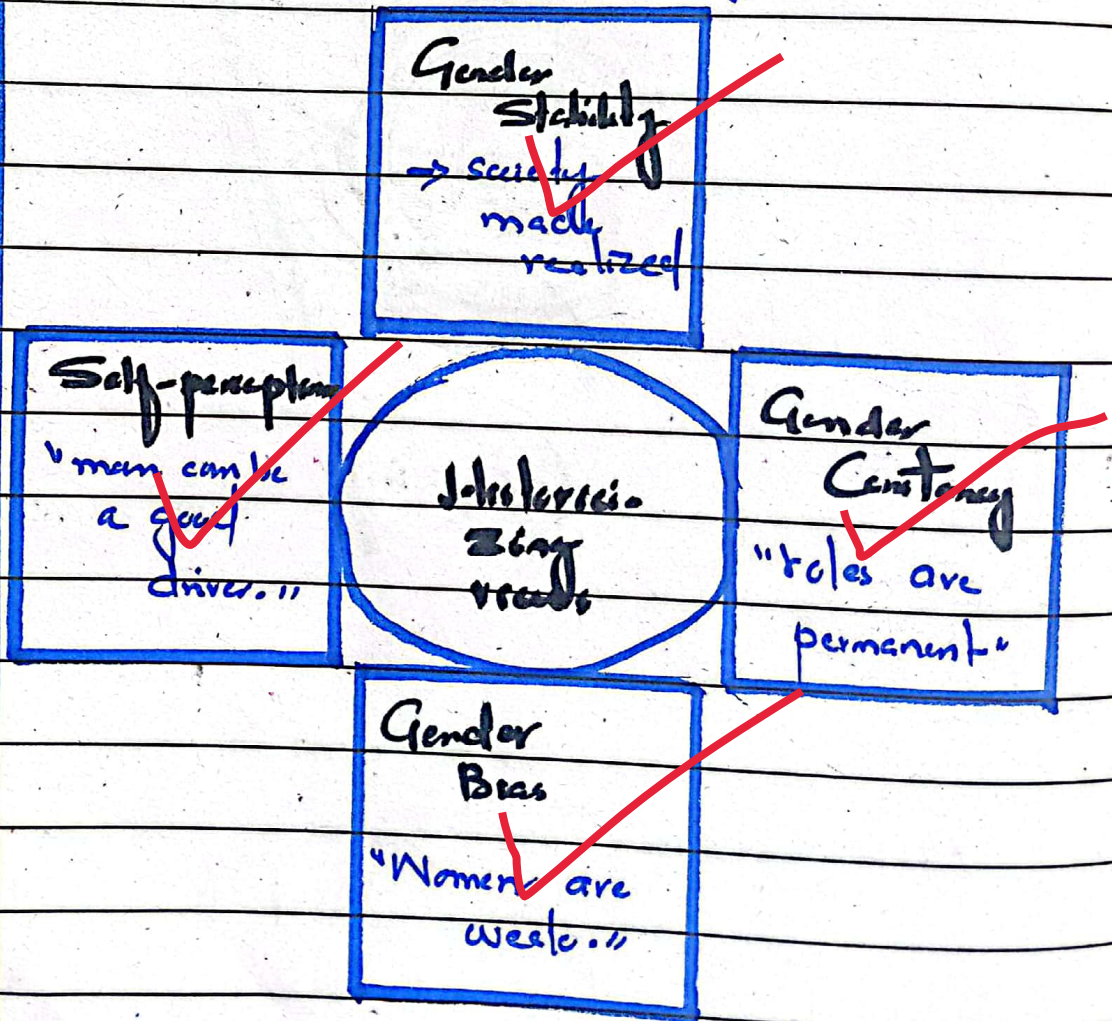 Gender
Stability
→ society
made
realized
Self-perception
"man can be
a good
driver."
Historici-
zing
Gender
Constancy
"roles are
permanent"
Gender
Bias
"Women are
weak."